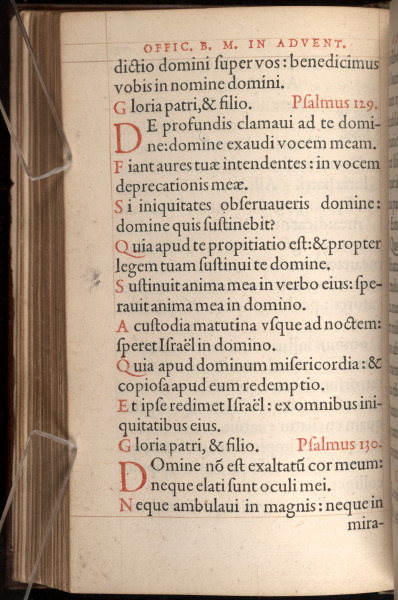 OFFIC. B. M. IN ADVENT.
dictio domini ſuper vos : benedicimus
vobis in nomine domini.
Gloria patri, & filio. Pſalmus 129.
DE profundis clamaui ad te domi-
ne: domine exaudi vocem meam.
Fiant aures tuæ intendentes : in vocem
deprecationis meæ.
Si iniquitates obſeruaueris domine :
domine quis ſuſtinebit?
Quia apud te propitiatio eſt: & propter
legem tuam ſuſtinui te domine.
Suſtinuit anima mea in verbo eius: ſpe-
rauit anima mea in domino.
A cuſtodia matutina vſque ad noctem:
ſperet Iſraël in domino.
Quia apud dominum miſericordia : &
copioſa apud eum redemptio.
Et ipſe redimet Iſraël : ex omnibus ini-
quitatibus eius.
Gloria patri, & filio. Pſalmus 130.
DOmine nõ eſt exaltatũ cor meum:
neque elati ſunt oculi mei.
Neque ambulaui in magnis : neque in
mira-